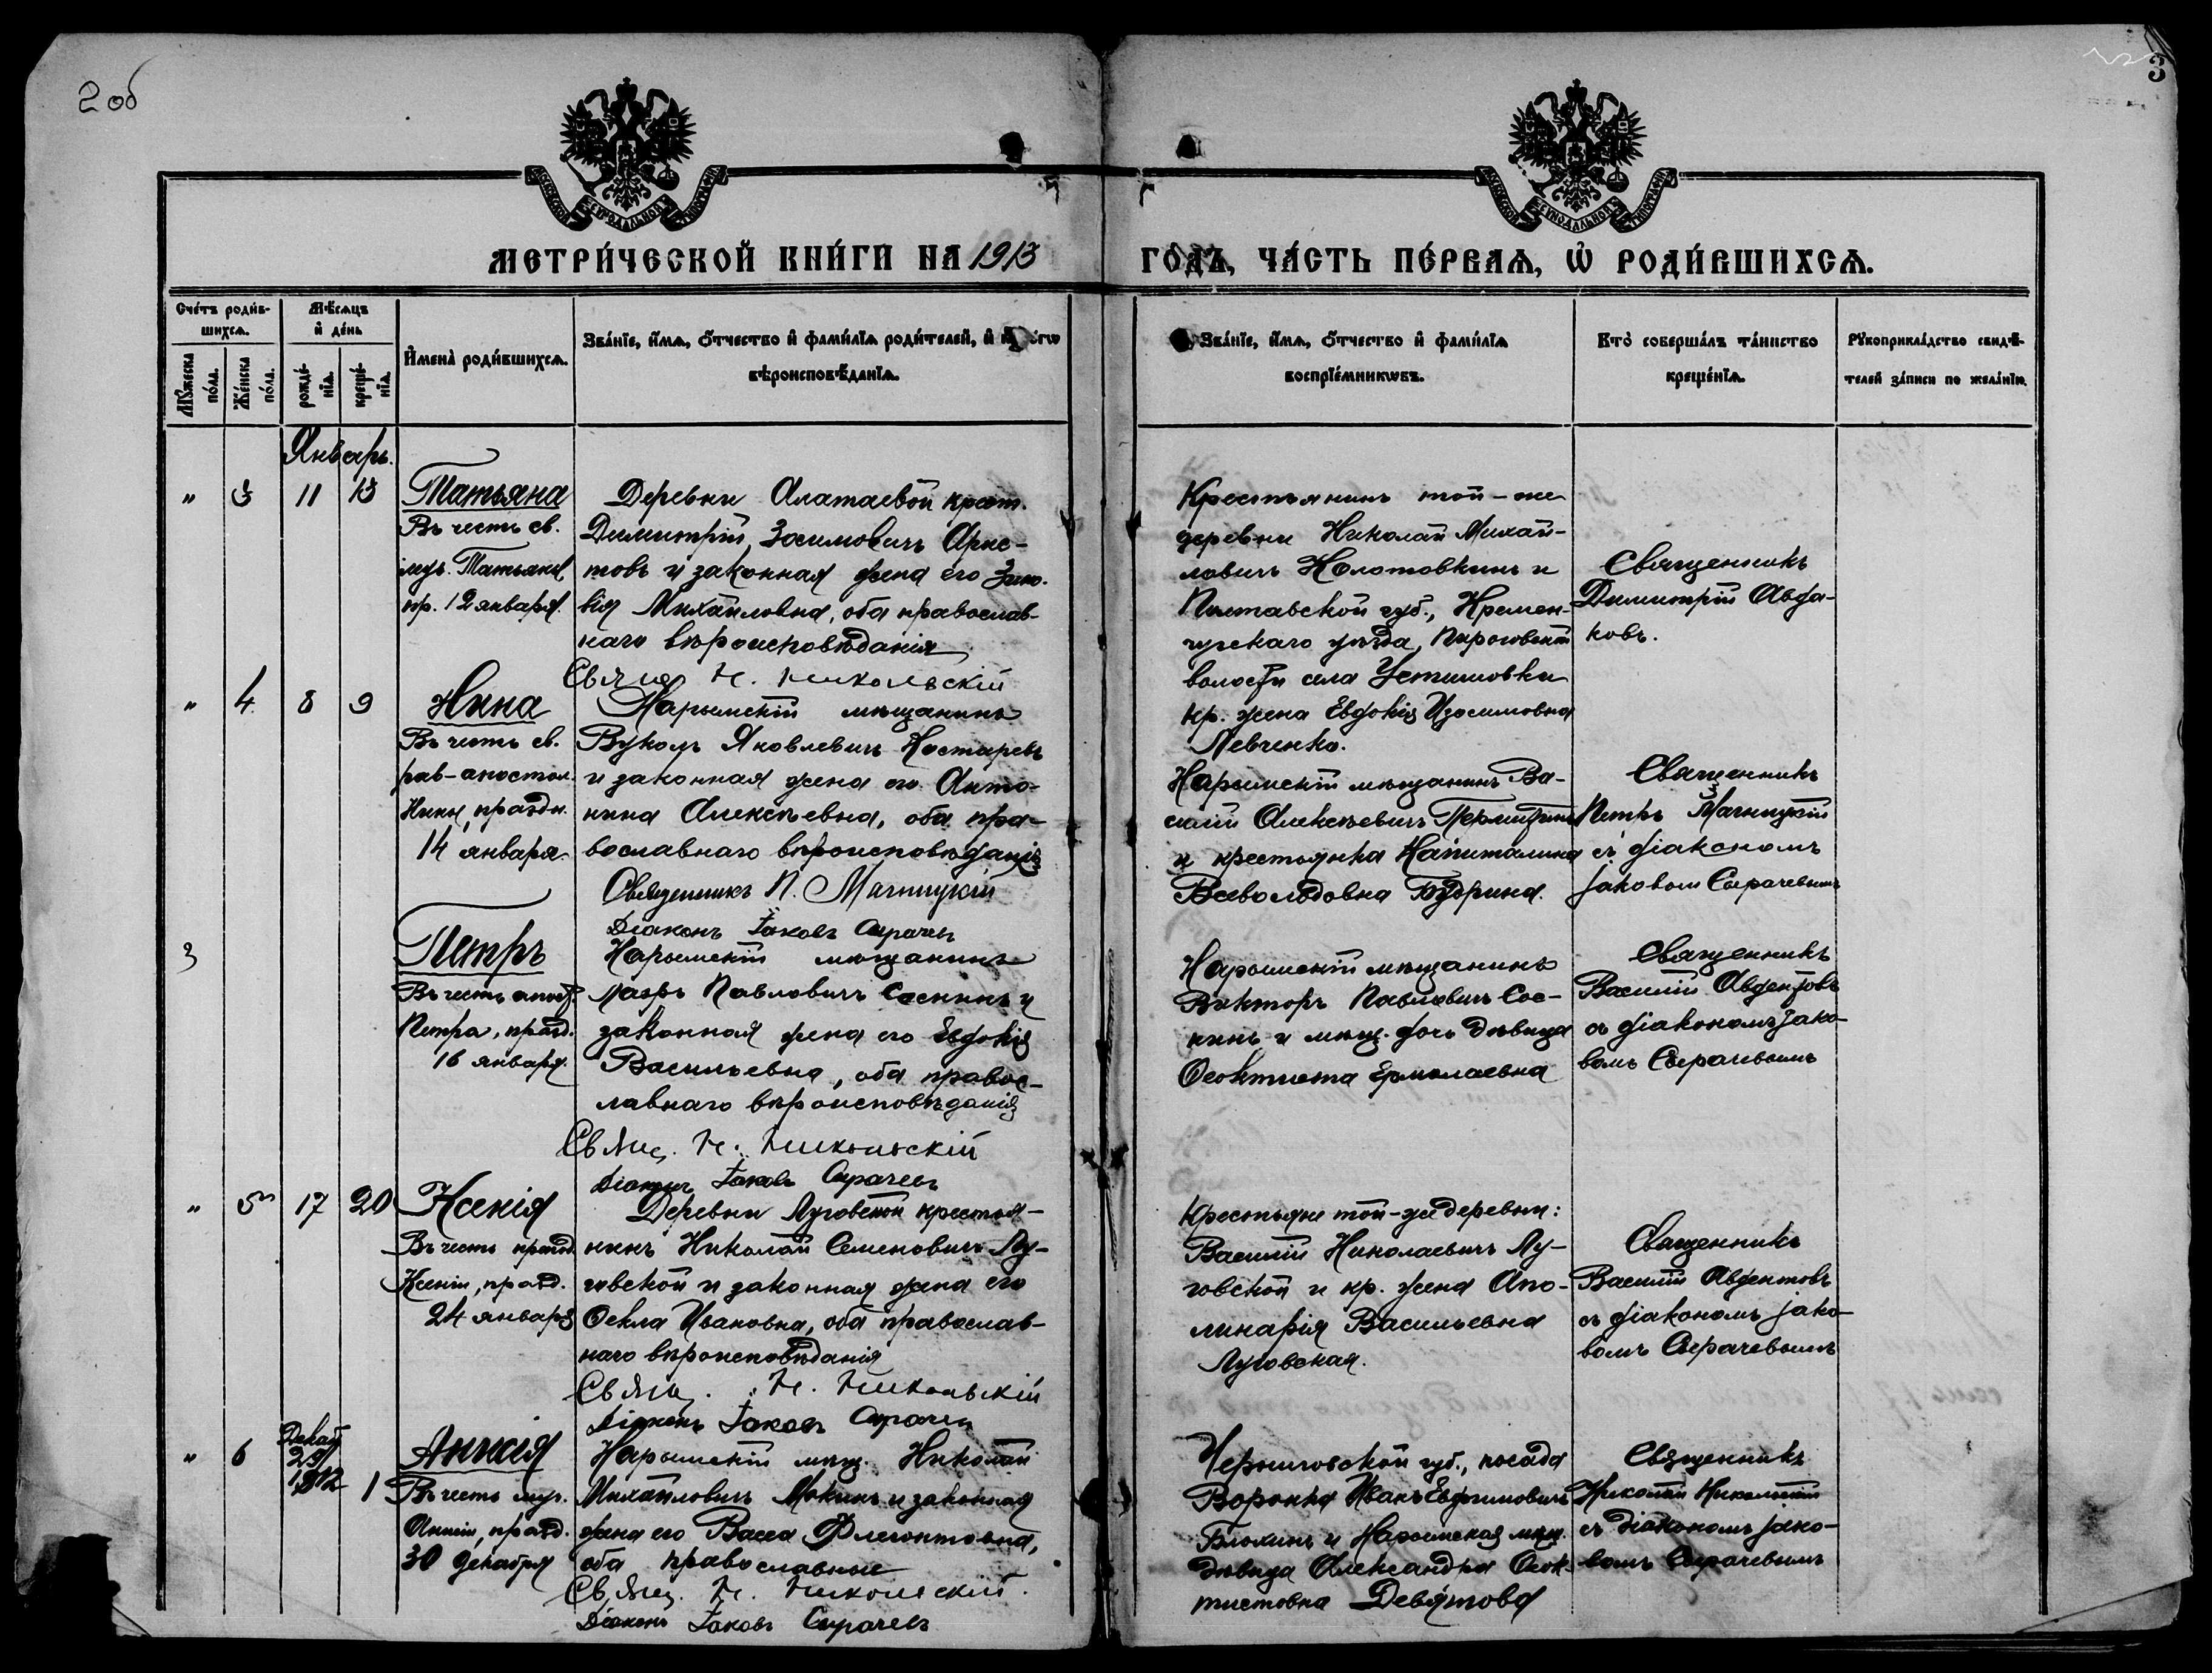 2 об
3
МОСКОВСКОЙ СѴНОДАЛЬНОЙ ТИПОГРАФІИ
МОСКОВСКОЙ СѴНОДАЛЬНОЙ ТИПОГРАФІИ
МЕТРИ́ЧЕСКОЙ КНИ́ГИ НА 1913
ГО́ДЪ, ЧА́СТЬ ПЕ́РВАѦ, Ѡ҆ РОДИ́ВШИХСѦ.
Сче́тъ роди́в-
шихсѧ.
Мꙋ́жеска по́ла.
Же́нска по́ла.
Мѣ́сѧцъ
и҆ де́нь
рожде́-
нїѧ.
креще́-
нїѧ.
И҆мена̀ роди́вшихсѧ.
Зва́нїе, и҆́мѧ, ѻ҆́тчество и҆ фами́лїѧ роди́телей, и҆
вѣроисповѣ́данїѧ.
Зва́нїе, и҆́мѧ, ѻ҆́тчество и҆ фами́лїѧ
воспрїе́мникѡвъ.
Кто̀ соверша́лъ та́инство
креще́нїѧ.
Рꙋкоприкла́дство свидѣ́-
телей за́писи по жела́нїю.
Январь.
" 3 11 13
Татьяна
Въ честь св.
муч. Татьяны,
пр. 12 января.
Деревни Алатаевой крест.
Димитрій Зосимовичъ Арис-
товъ и законная жена его Зино-
вія Михайловна, оба православ-
наго вѣроисповѣданія
Свящ Н. Никольскій
Крестьянинъ той-же
деревни Николай Михай-
ловичъ Колотовкинъ и
Полтавской губ., Кремен-
чугскаго уѣзда,
волости села Устимовки
кр. жена Евдокія Изосимовна
Левченко.
Священникъ
Димитрій Авда-
ковъ.
" 4 8 9
Нина
Въ честь св.
рав-апостол.
Нины, праздн.
14 января.
Нарымскій мѣщанинъ
Вуколъ Яковлевичъ Костыревъ
и законная жена его Анто-
нина Алексѣевна, оба пра-
вославнаго вѣроисповѣданія
Священникъ П. Магницкій
Діаконъ Іаковъ Сырачевъ
Нарымскій мѣщанинъ Ва-
силій Алексѣевичъ
и крестьянка Капиталина
Всеволодовна Будрина.
Священникъ
Петръ Магницкій
съ діакономъ
Іаковом Сырачевымъ
3
Петръ
Въ честь апост.
Петра, празд.
16 января.
Нарымскій мѣщанинъ
Лавръ Павловичъ Соснинъ и
законная жена его Евдокія
Васильевна, оба правос-
лавнаго вѣроисповѣданія
Свящ. Н. Никольскій
Діаконъ Іаковъ Сырачевъ
Нарымскій мѣщанинъ
Викторъ Павловичъ Сос-
нинъ и мѣщ. дочь дѣвица
Ѳеоктиста Ермолаевна
Священникъ
Василій Авдентовъ
съ діакономъ Іако-
вомъ Сырачевымъ
" 5 17 20
Ксенія
Въ честь препод.
Ксеніи, празд.
24 января
Деревни Луговской крестья-
нинъ Николай Семеновичъ Лу-
говской и законная жена его
Ѳекла Ивановна, оба православ-
наго вѣроисповѣданія
Свящ. Н. Никольскій
Діаконъ Іаковъ Сырачевъ
Крестьяне той-же деревни:
Василій Николаевичъ Лу-
говской и кр. жена Апо-
линарія Васильевна
Луговская.
Священникъ
Василій Авдентовъ
съ діакономъ Іако-
вомъ Сырачевымъ
" 6
Декаб.
29
1912
1
Анисія
Въ честь муч.
Анисіи, празд.
30 декабря
Нарымскій мѣщ. Николай
Михайловичъ Мокинъ и законная
жена его Васса Флегонтовна,
оба православные
Свящ. Н. Никольскій.
Діаконъ Іаковъ Сырачевъ
Черниговской губ., посада
Воронка Иванъ Евфимовичъ
Блохинъ и Нарымская мѣщ.
дѣвица Александра Ѳеок-
тистовна Девятова
Священникъ
Николай Никольскій
съ діакономъ Іако-
вомъ Сырачевымъ